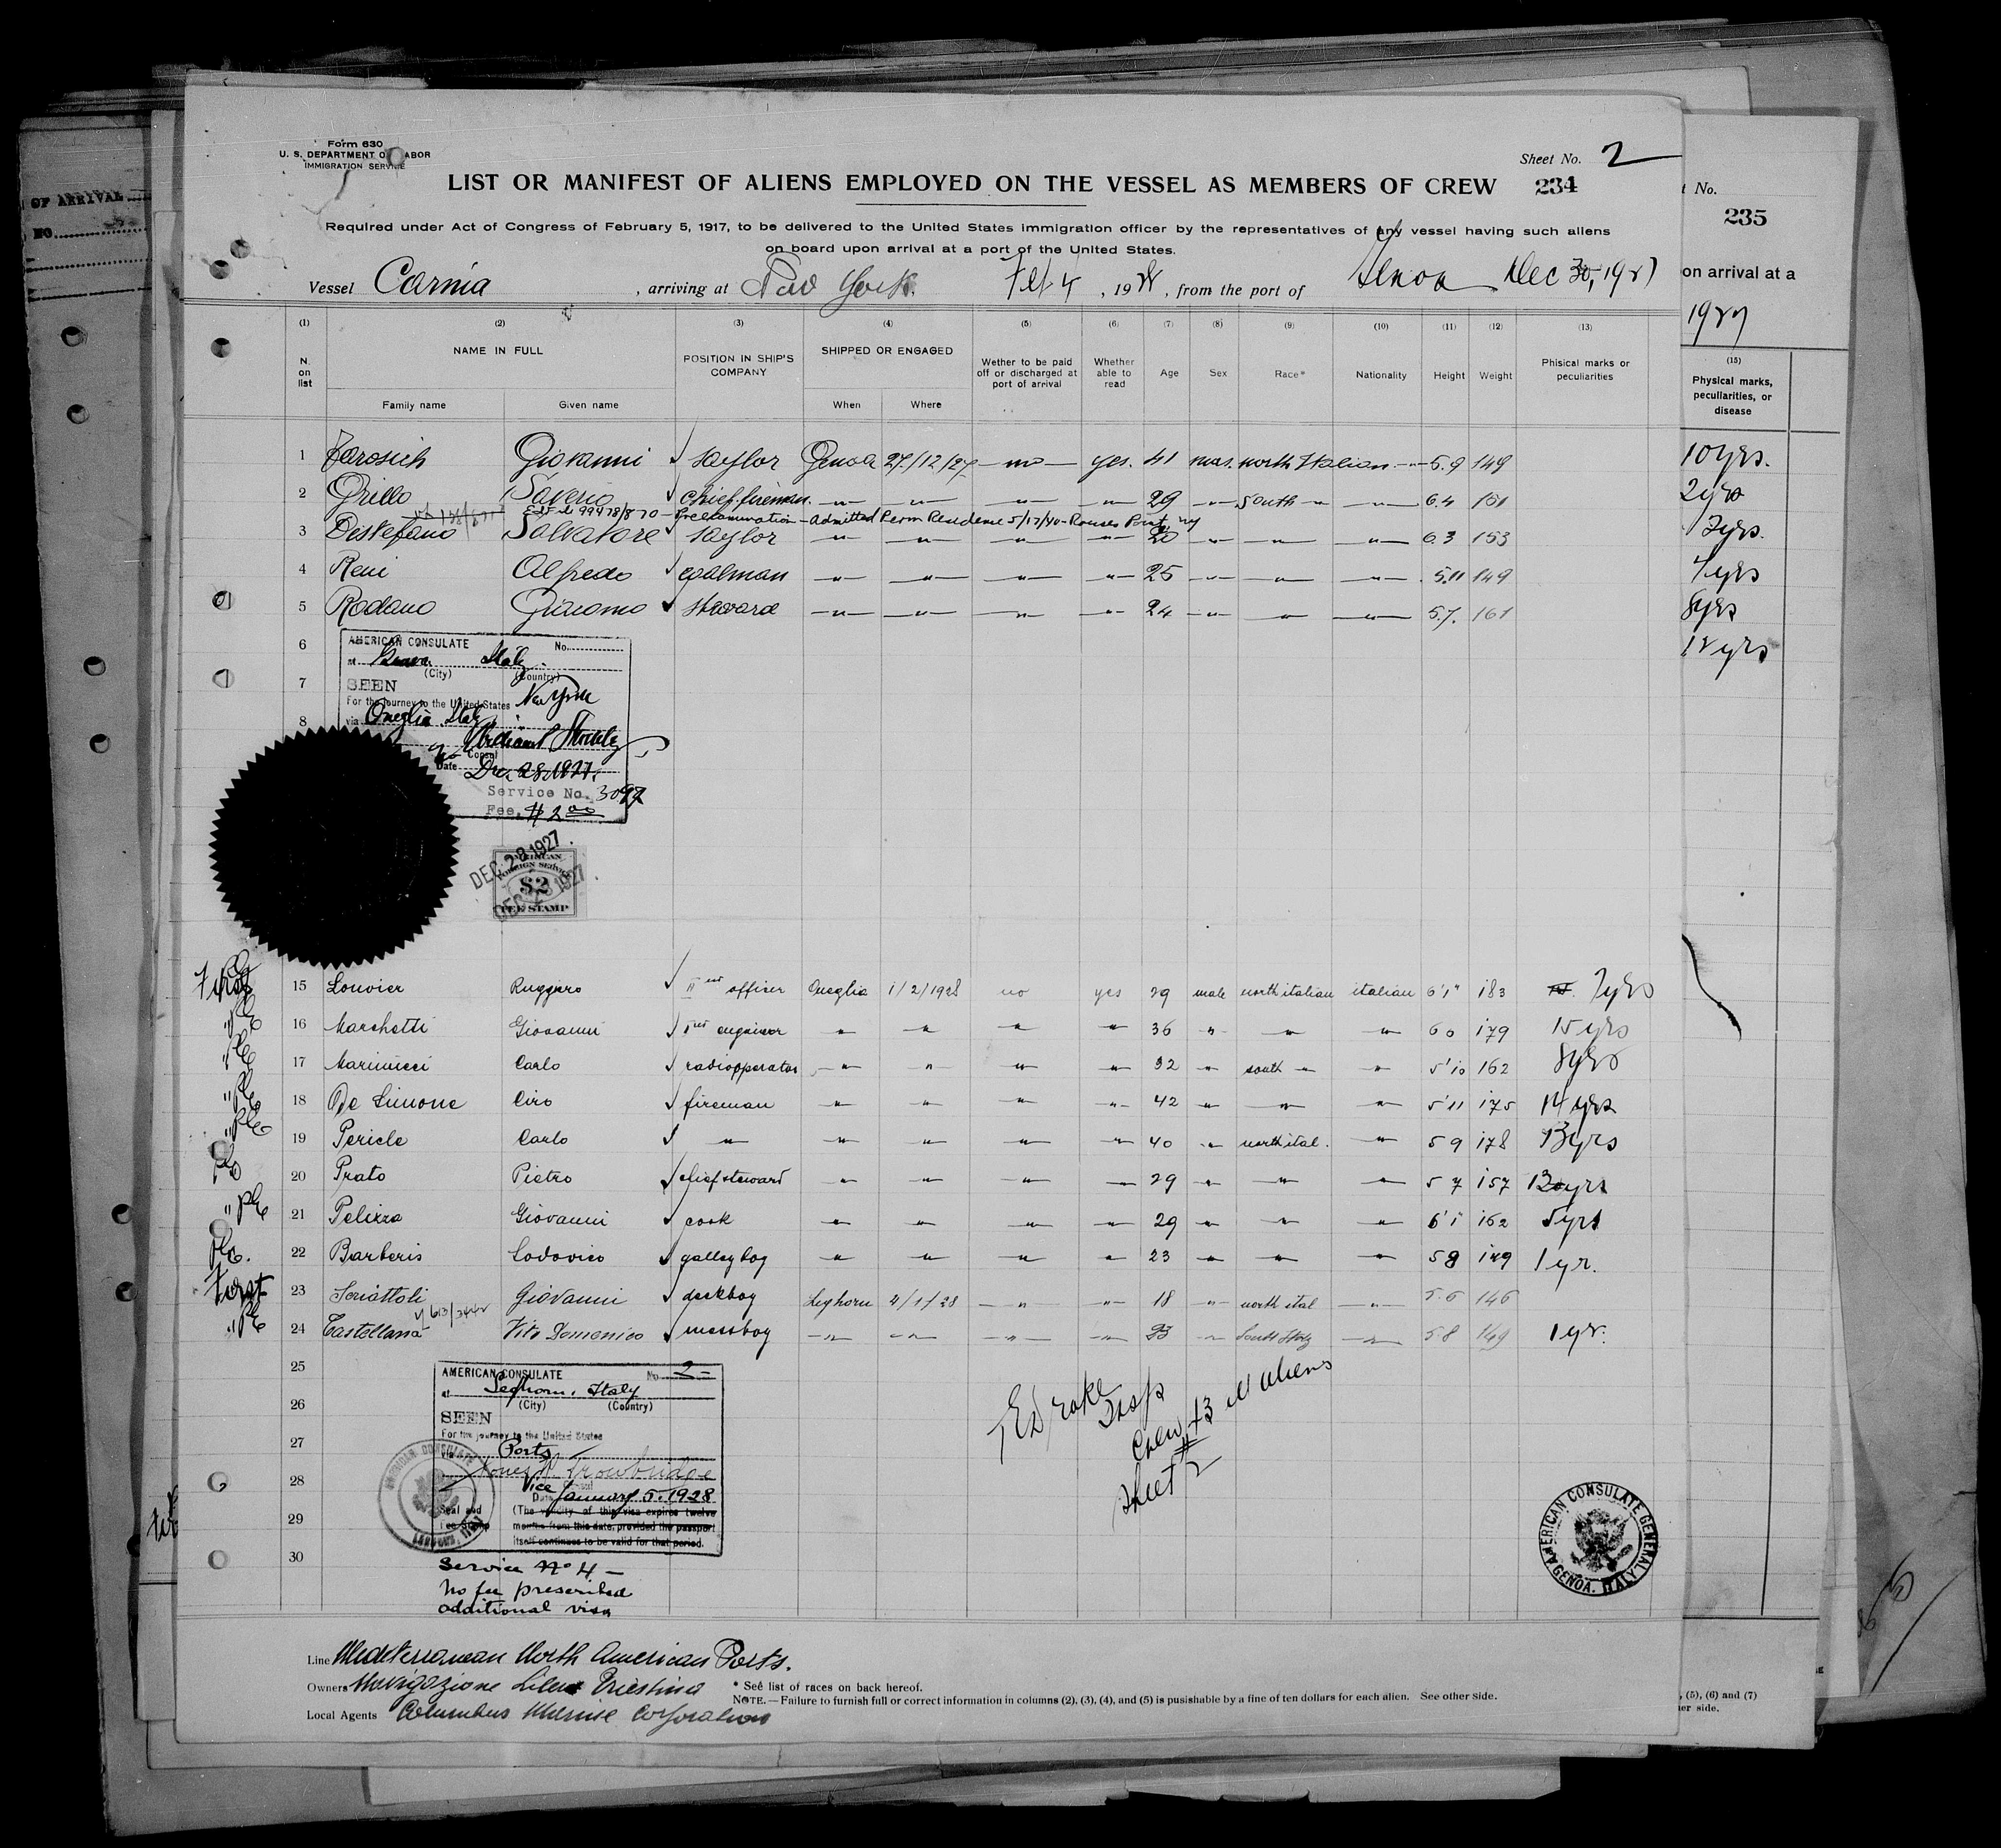 Form 630
U. S. DEPARTMENT OF LABOR
IMMIGRATION SERVICE
Sheet No. 2
LIST OR MANIFEST OF ALIENS EMPLOYED ON THE VESSEL AS MEMBERS OF CREW 234
Required under Act of Congress of February 5, 1917, to be delivered to the United States immigration officer by the representatives of any vessel having such aliens
on board upon arrival at a port of the United States.
Vessel Carnia , arriving at New York. Feb 4 , 1928 , from the port of Genoa Dec 30, 1927
(1) (2) (3) (4) (5) (6) (7) (8) (9) (10) (11) (12) (13)
N. on list NAME IN FULL POSITION IN SHIP'S COMPANY SHIPPED OR ENGAGED Wether to be paid off or discharged at port of arrival Whether able to read Age Sex Race* Nationality Height Weight Phisical marks or peculiarities
Family name Given name When Where
1 Tarosich Giovanni saylor Genoa 27/12/27 no yes. 41 mas. north Italian 5.9 149
2 Grillo Saverio chief fireman " " " " 29 " South " " 6.4 151
99478/870 - Preexamination - Admitted Perm Residence 5/17/40 - Rouses Point, ny
3 Distefano Salvatore saylor " " " " 20 " " " 6.3 153
4 Reni Alfredo coalman " " " " 25 " " " 5.11 149
5 Rodano Giacomo steward " " " " 24 " " " 5.7. 161
6
7
8
AMERICAN CONSULATE No.
at Genoa Italy.
(City) (Country)
SEEN
For the journey to the United States New York
via Oneglia Italy
Consul
Date Dec. 28. 1927.
Service No. 3097
Fee, $2.00
DEC 28 1927
AMERICAN FOREIGN SERVICE
$2
FEE STAMP
DEC 28 1927
First 15 Louvier Ruggero IInd officer Oneglia 1/2/1928 no yes 29 male north italian italian 6'1" 183 7yrs
16 Marchetti Giovanni Ist engineer " " " " 36 " " " 6 0 179 15 yrs
17 Marinucci Carlo radiopperator " " " " 32 " south " " 5'10 162 8yrs
18 De Simone Ciro fireman " " " " 42 " " " 5'11 175 14 yrs
19 Pericle Carlo " " " " " 40 " north ital. " 5 9 178 13yrs
20 Prato Pietro chief steward " " " " 29 " " " 5 7 157 13 yrs
21 Pelizza Giovanni cook " " " " 29 " " " 6'1" 162 5yrs
22 Barberis Lodovico galleyboy " " " " 23 " " " 5 8 149 1 yr.
First 23 Scriattoli Giovanni deckboy Leghorn 4/1/28 " " 18 " north ital " 5.6 146
24 Castellana Vito Domenico messboy " " " " 23 " South Italy " 5.8 149 1 yr.
25
26
27
28
29
30
AMERICAN CONSULATE No 2-
at Leghorn, Italy
(City) (Country)
SEEN
For the journey to the United States
via Ports
Trowbridge
Vice Consul
Date January 5. 1928
Seal and Fee Stamp
(The validity of this visa expires twelve
months from this date, provided the passport
itself continues to be valid for that period.
Service No 4 -
no fee prescribed
additional visa
Drake
Insp
Crew 43 all aliens
Sheet # 2
AMERICAN CONSULATE GENERAL
GENOA, ITALY
Line Mediterranean North American Ports.
Owners Navigazione Libera Triestina
Local Agents Columbus Marine Corporation
* See list of races on back hereof.
NOTE.—Failure to furnish full or correct information in columns (2), (3), (4), and (5) is pusishable by a fine of ten dollars for each alien. See other side.
OF ARRIVAL
NO.
No.
235
on arrival at a
1927
(15)
Physical marks, peculiarities, or disease
10yrs.
2yrs
13yrs.
7yrs
8yrs
18 yrs
, (5), (6) and (7)
her side.